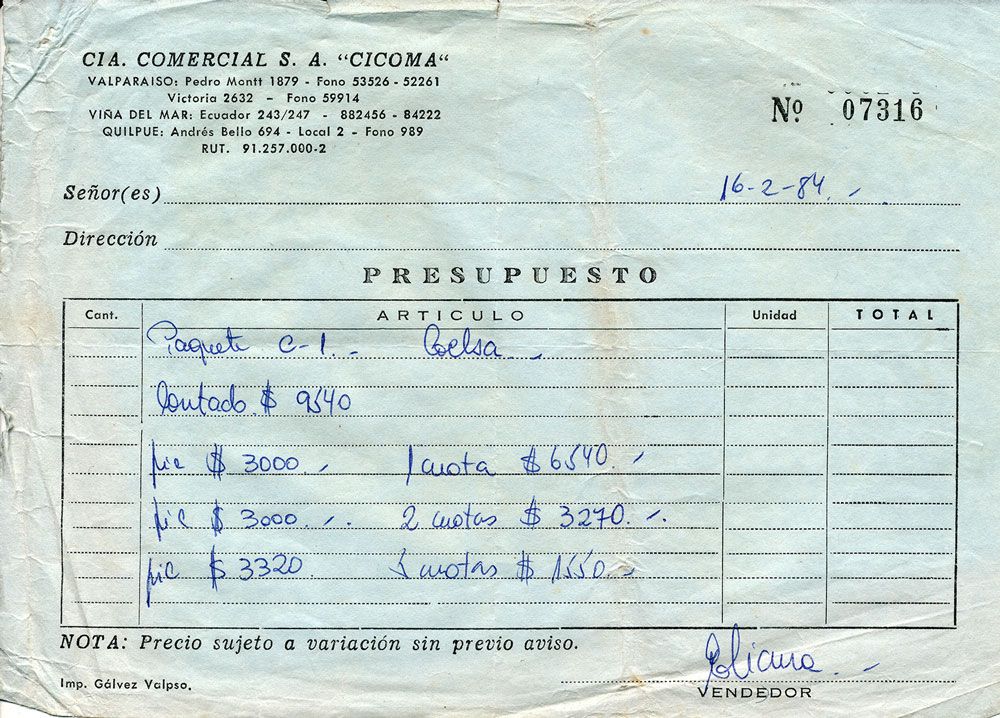 CIA. COMERCIAL S. A. "CICOMA"
VALPARAISO: Pedro Montt 1879 - Fono 53526 - 52261
Victoria 2632 - Fono 59914
VIÑA DEL MAR: Ecuador 243/247 - 882456 - 84222
QUILPUE: Andrés Bello 694 - Local 2 - Fono 989
RUT. 91.257.000-2
Nº 07316
Señor(es) 16-2-84.-
Dirección
PRESUPUESTO
Cant. ARTICULO Unidad TOTAL
Paquete C-1.- Coelsa.-
Contado $ 9540
pie $ 3000.- 1 cuota $ 6540.-
pie $ 3000.-. 2 cuotas $ 3270.-.
pie $ 3320 5 cuotas $ 1550.-
NOTA: Precio sujeto a variación sin previo aviso.
Imp. Gálvez Valpso.
VENDEDOR